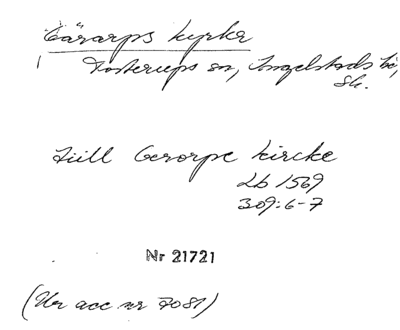 Gärarps kyrka
Tosterups sn, Ingelstads hd,
Sk.
till Gerorpe kircke
Lb 1569
309:6-7
Nr 21721
(Ur acc nr 7081)